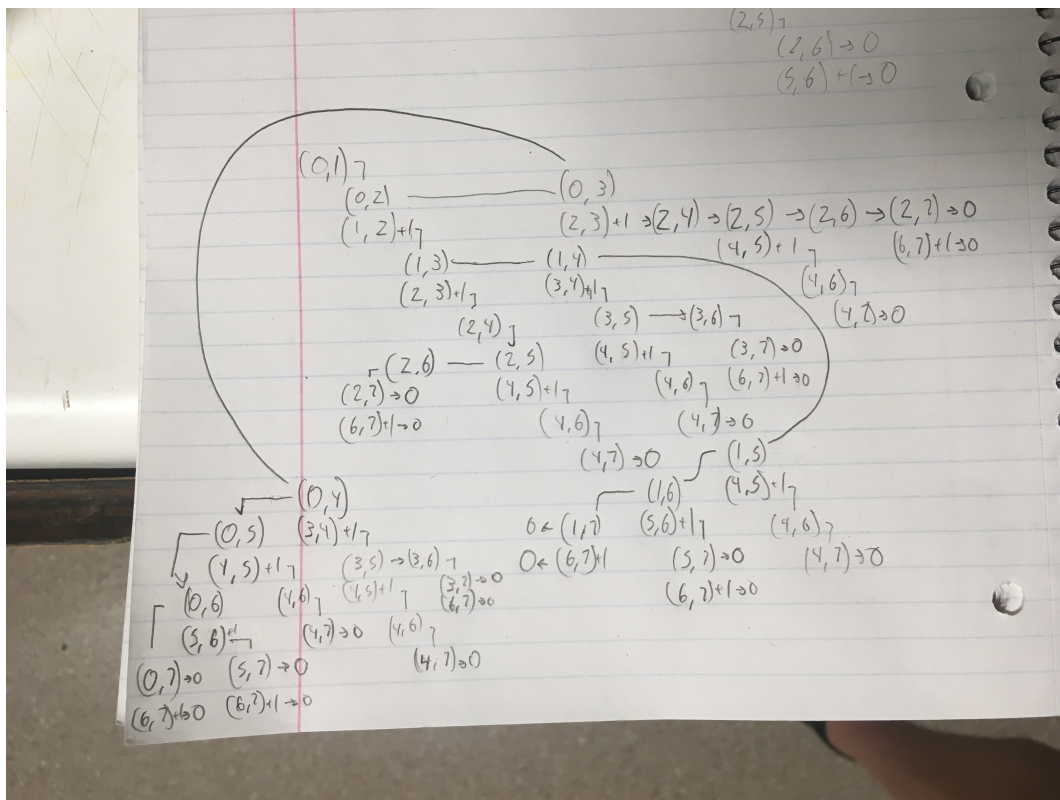 (2,5)⌝
(2,6)→0
(5,6)+1→0
(0,1)⌝
(0,2) — (0,3)
(1,2)+1⌝ (2,3)+1→(2,4)→(2,5)→(2,6)→(2,7)→0
(4,5)+1⌝ (6,7)+1→0
(1,3) — (1,4)
(2,3)+1⌝ (3,4)+1⌝ (4,6)⌝
(2,4)⌝ (3,5)→(3,6)⌝ (4,7)→0
(2,6) — (2,5) (4,5)+1⌝ (3,7)→0
(2,7)→0 (4,5)+1⌝ (4,6)⌝ (6,7)+1→0
(6,7)+1→0 (4,6)⌝ (4,7)→0
(4,7)→0 (1,5)
(0,4) (1,6) (4,5)+1⌝
(0,5) (3,4)+1⌝ 0←(1,7) (5,6)+1⌝ (4,6)⌝
(4,5)+1⌝ (3,5)→(3,6)⌝ 0←(6,7)+1 (5,7)→0 (4,7)→0
(0,6) (4,6)⌝ (4,5)+1⌝ (3,7)→0 (6,7)+1→0
(6,7)→0
(5,6)+1⌝ (4,7)→0 (4,6)⌝
(0,7)→0 (5,7)→0 (4,7)→0
(6,7)+1→0 (6,7)+1→0